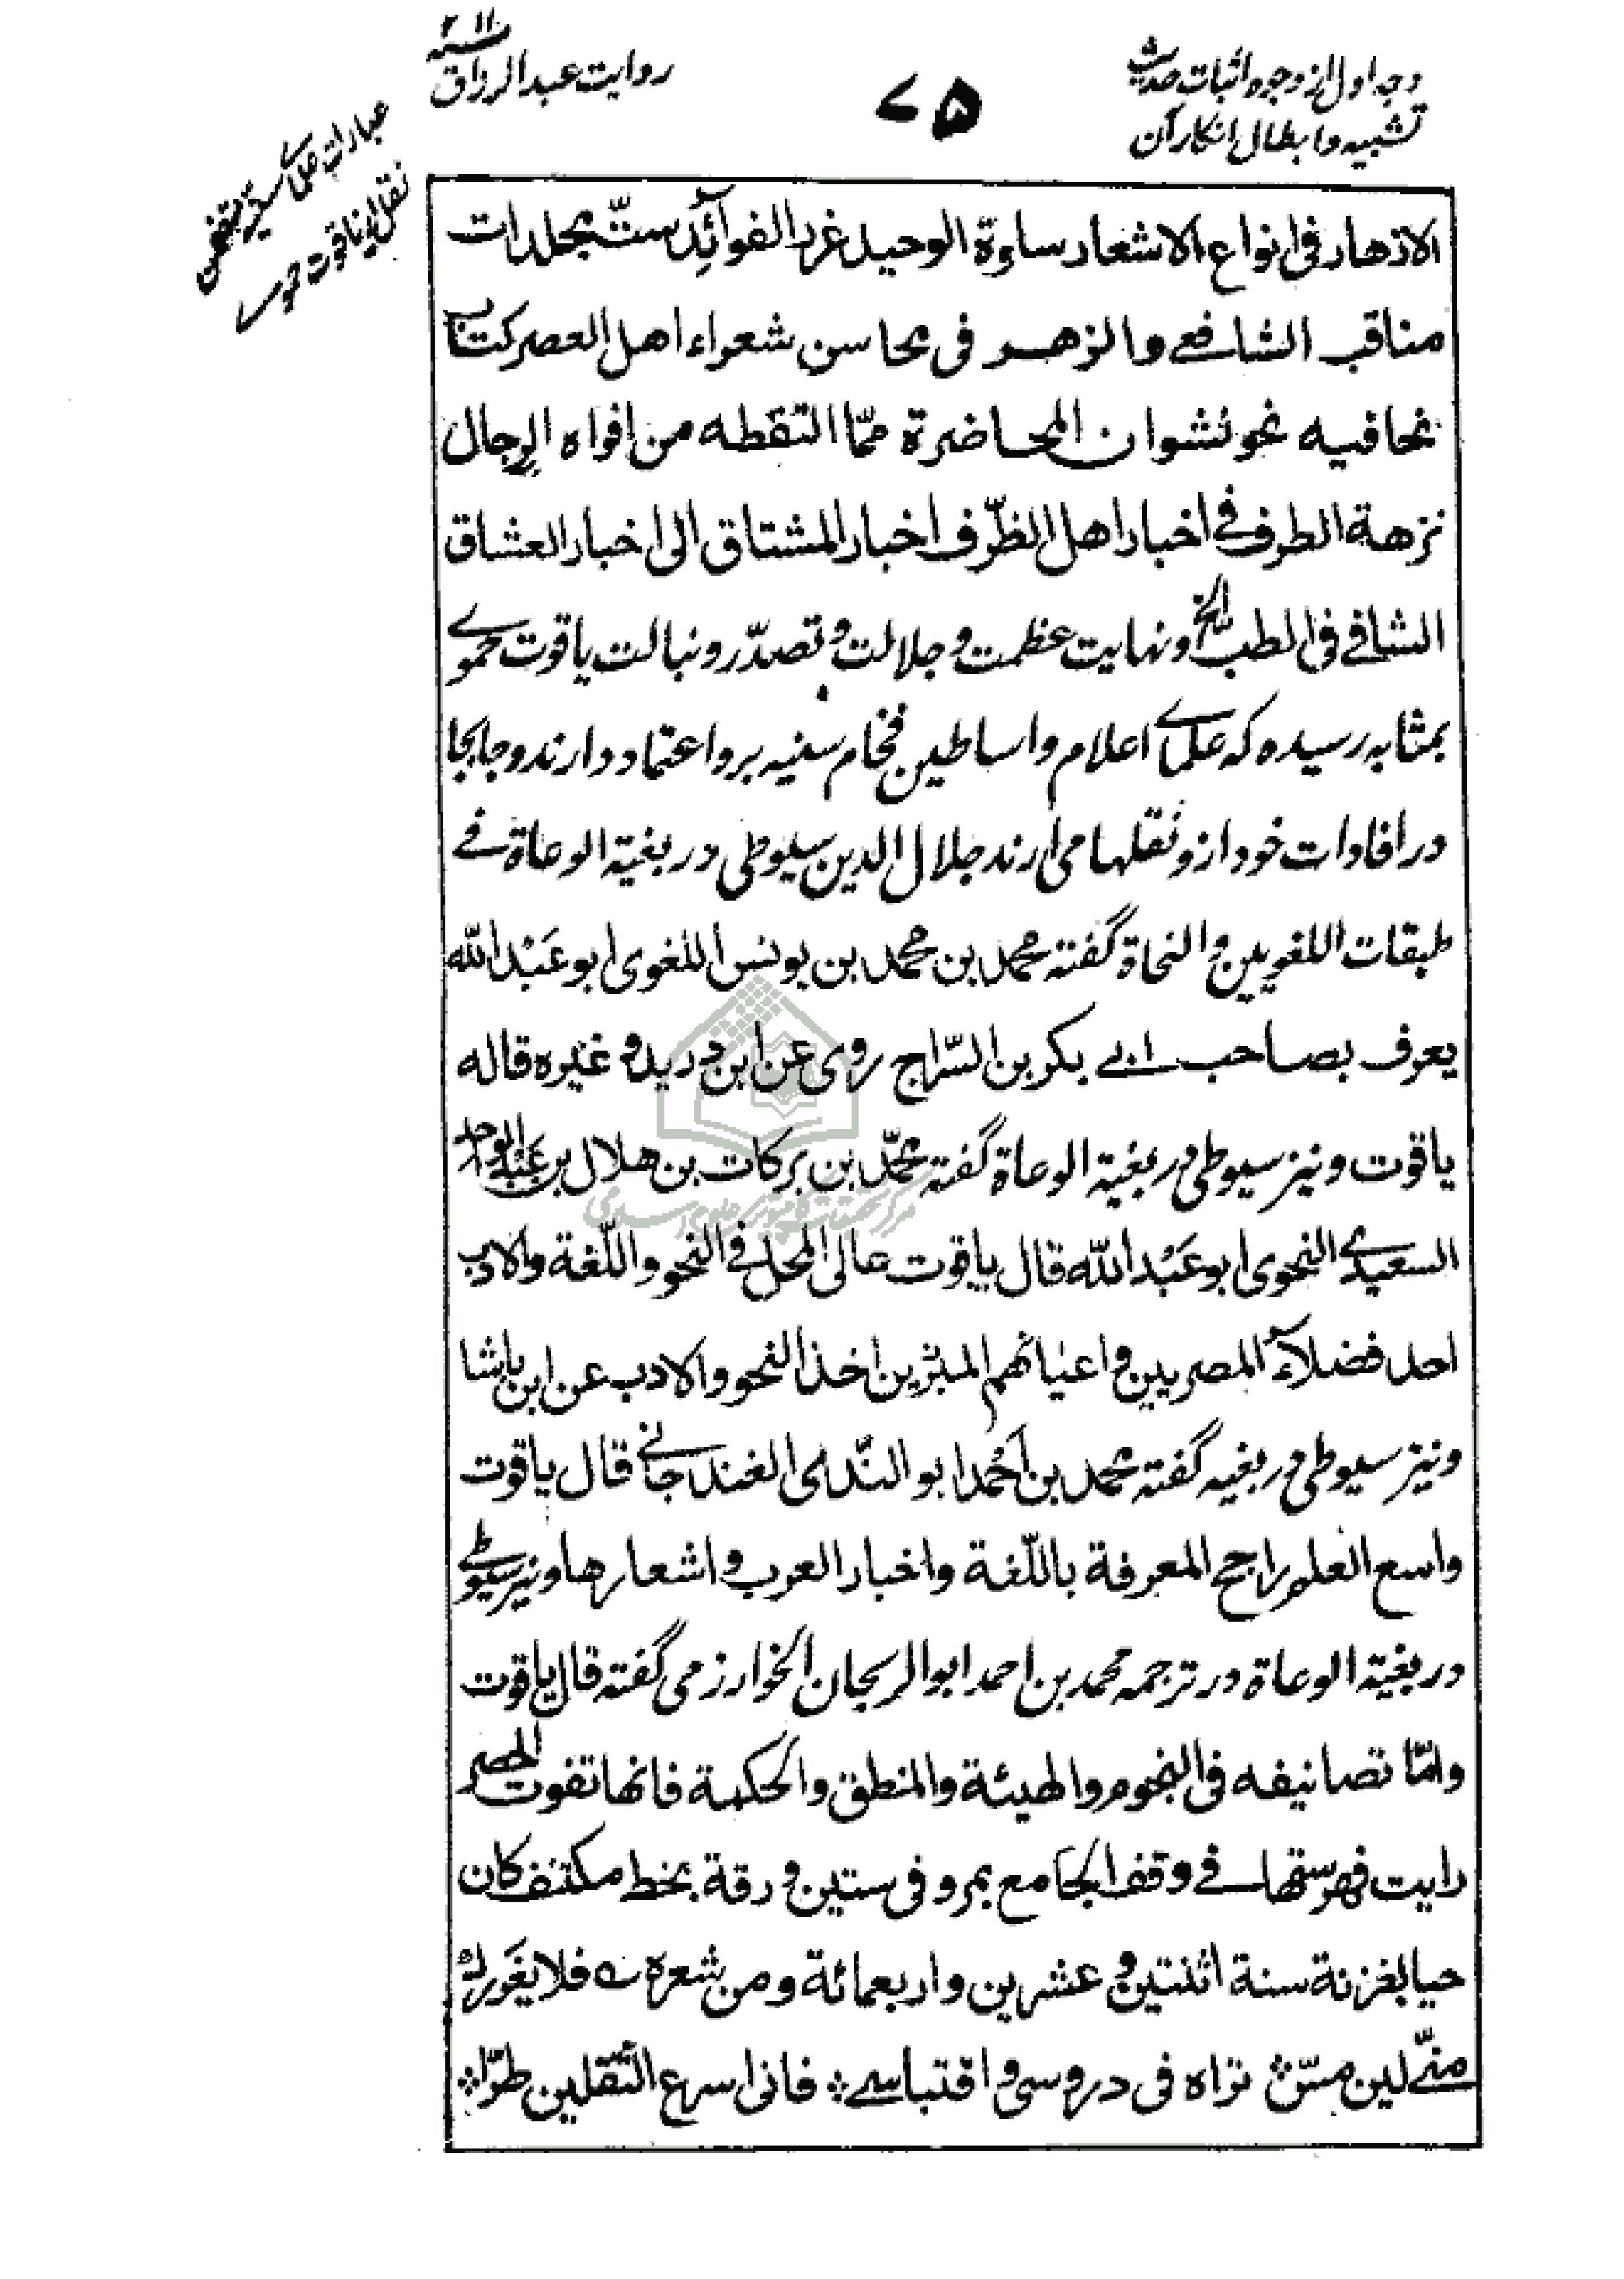 وجه اول از وجوه اثبات حدیث
تشبیه و ابطال انکار آن
۷۵
روایت عبدالرزاق
سنه ۲۱۱
عبارات علمای سنیه متضمن
نقل از یاقوت حموی
الازهار فی انواع الاشعار ساوة الوحید غرر الفوآئد ستّ مجلدات
مناقب الشافعے والزهر فی محاسن شعراء اهل العصر کتاب
نحا فیه نحو نشوان المحاضرة ممّا التقطه من افواه الرجال
نزهة الطرف فے اخبار اهل الظّرف اخبار المشتاق الی اخبار العشاق
الشافے فی الطب الخ و نهایت عظمت و جلالت و تصدّر و نبالت یاقوت حموے
بمثابه رسیده که علماے اعلام و اساطین فخام سنیه برو اعتماد دارند و جابجا
در افادات خود ازو نقلها می آرند جلال الدین سیوطی در بغیة الوعاة فے
طبقات اللغویین و النحاة گفته محمد بن محمد بن یونس اللغوی ابو عَبْد الله
یعرف بصاحب ابے بکر بن السّراج روی عن ابن درید و غیره قاله
یاقوت و نیز سیوطی در بغیة الوعاة گفته محمّد بن برکات بن هلال بن عبد الواحد
السعیدے النحوی ابو عَبْد الله قال یاقوت عالی المحل فے النحو و اللّغة والادب
احد فضلآء المصریین و اعیانهم المبرّزین اخذ النحو والادب عن ابن بابشا
و نیز سیوطی در بغیه گفته محمد بن اَحْمد ابو النّدی الغندجانے قال یاقوت
واسع العلم راجح المعرفة باللّغة و اخبار العرب و اشعارها و نیز سیوطے
در بغیة الوعاة در ترجمه محمد بن احمد ابو الریحان الخوارزمی گفته قال یاقوت
وامّا تصانیفه فی النجوم والهیئة والمنطق والحکمة فانها تفوت الحصر
رایت فهرستها فے وقف الجامع بمرو فی ستین ورقة بخط مکتنف کان
حیا بغزنة سنة اثنتین و عشرین و اربعمائة و من شعره ؎ فلا یغررك
منّے لین مسّ ؞ تراه فی دروسی و اقتباسے ؞ فانی اسرع الثّقلین طرّا ؞